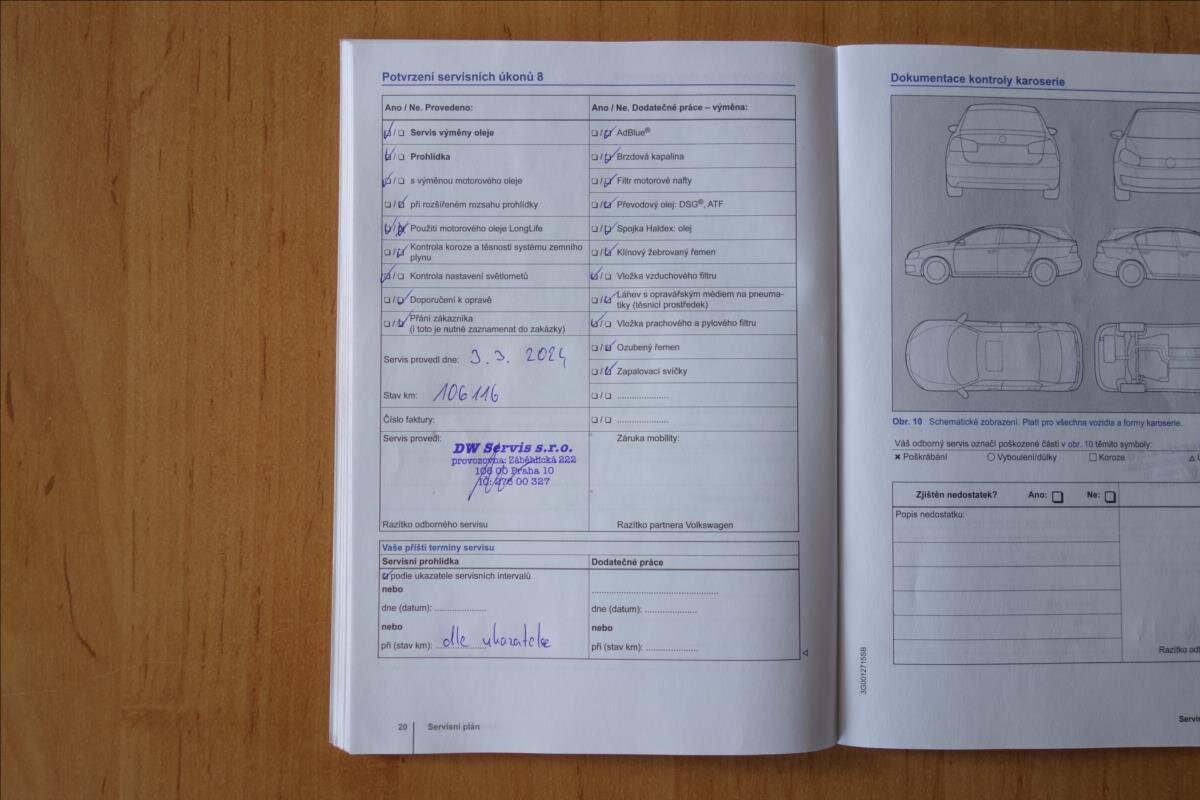 Potvrzení servisních úkonů 8
Ano / Ne. Provedeno:
Servis výměny oleje
Prohlídka
s výměnou motorového oleje
při rozšířeném rozsahu prohlídky
Použití motorového oleje LongLife
Kontrola koroze a těsnosti systému zemního
plynu
Kontrola nastavení světlometů
Doporučení k opravě
Přání zákazníka
(i toto je nutné zaznamenat do zakázky)
Servis provedl dne: 3. 3. 2024
Stav km: 106 116
Číslo faktury:
Servis provedl:
DW Servis s.r.o.
provozovna: Záběhlická 222
106 00 Praha 10
Razítko odborného servisu
Ano / Ne. Dodatečné práce – výměna:
AdBlue®
Brzdová kapalina
Filtr motorové nafty
Převodový olej: DSG®, ATF
Spojka Haldex: olej
Klínový žebrovaný řemen
Vložka vzduchového filtru
Láhev s opravářským médiem na pneuma-
tiky (těsnicí prostředek)
Vložka prachového a pylového filtru
Ozubený řemen
Zapalovací svíčky
Záruka mobility:
Razítko partnera Volkswagen
Vaše příští termíny servisu
Servisní prohlídka
podle ukazatele servisních intervalů
nebo
dne (datum): ....................
nebo
při (stav km): dle ukazatele
Dodatečné práce
dne (datum): ....................
nebo
při (stav km): ....................
20 Servisní plán
Dokumentace kontroly karoserie
Obr. 10 Schematické zobrazení. Platí pro všechna vozidla a formy karoserie.
Váš odborný servis označí poškozené části v obr. 10 těmito symboly:
× Poškrábání ○ Vyboulení/důlky □ Koroze
Zjištěn nedostatek? Ano: Ne:
Popis nedostatku:
3G0012715SB